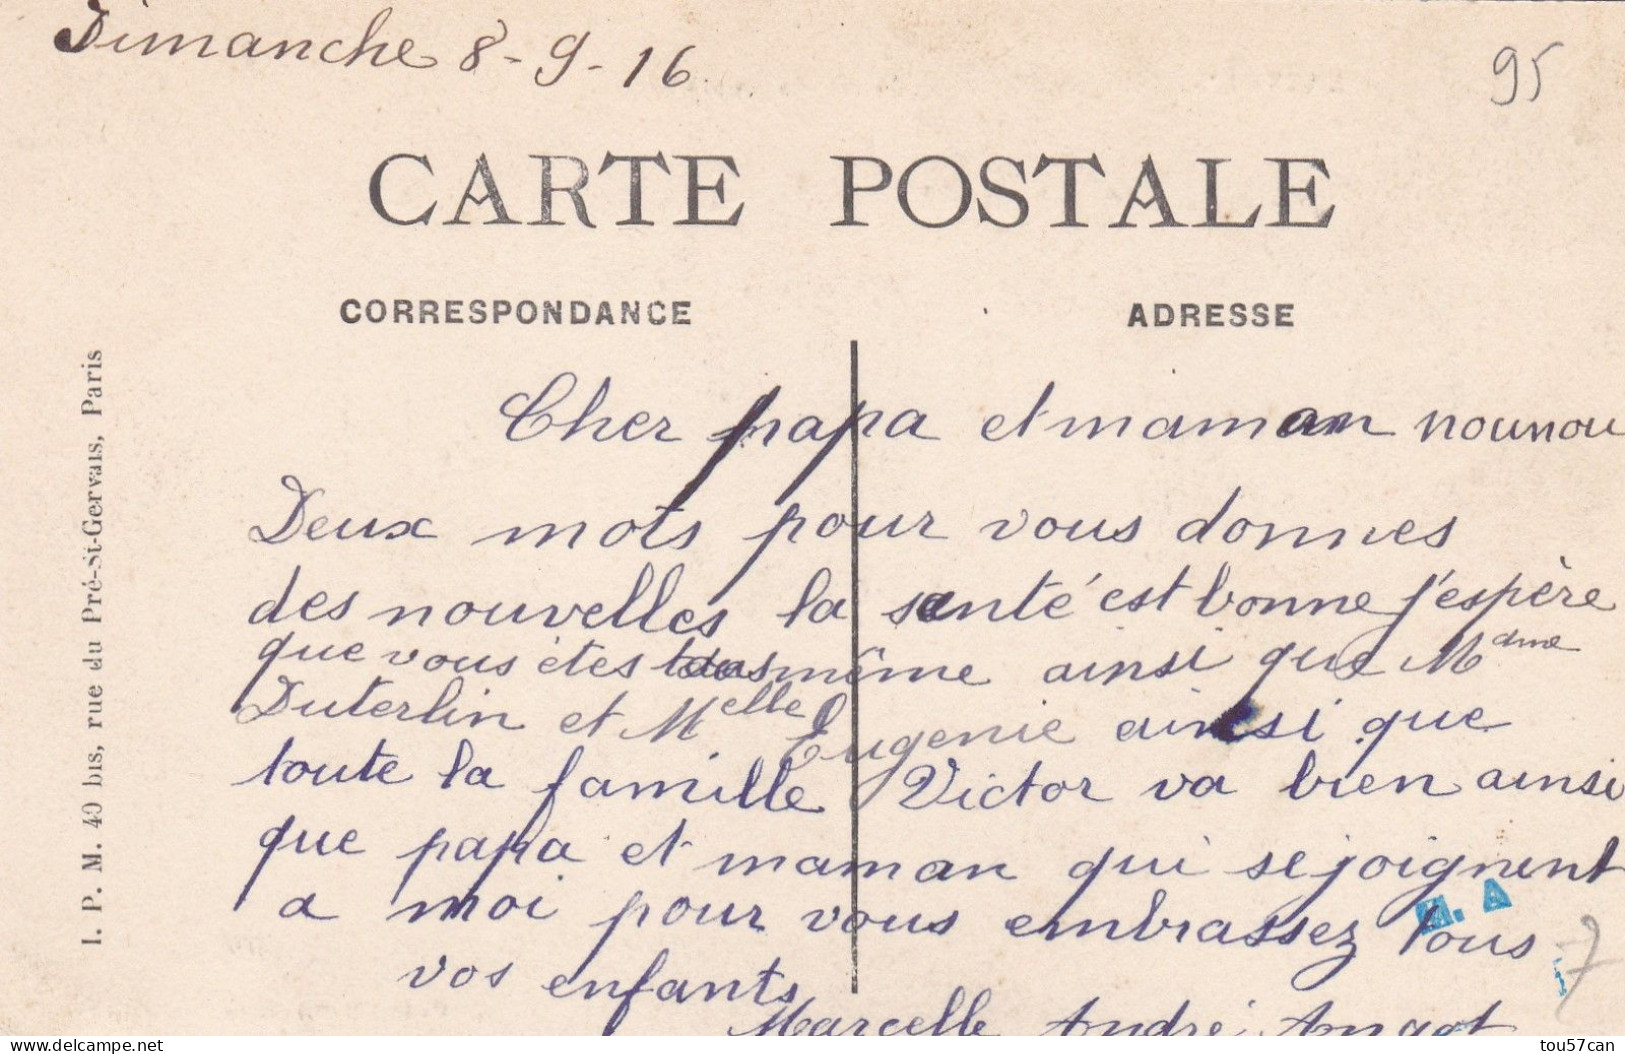 Dimanche 8-9-16
95
CARTE POSTALE
CORRESPONDANCE
ADRESSE
I. P. M. 40 bis, rue du Pré-St-Gervais, Paris
Cher papa et maman nounou
Deux mots pour vous donnes
des nouvelles la santé est bonne j'espère
que vous êtes de même ainsi que Mdme
Duterlin et Melle Eugenie ainsi que
toute la famille Victor va bien ainsi
que papa et maman qui se joignent
a moi pour vous embrassez tous
vos enfants
Marcelle André Angot
M. A
7
tou57can